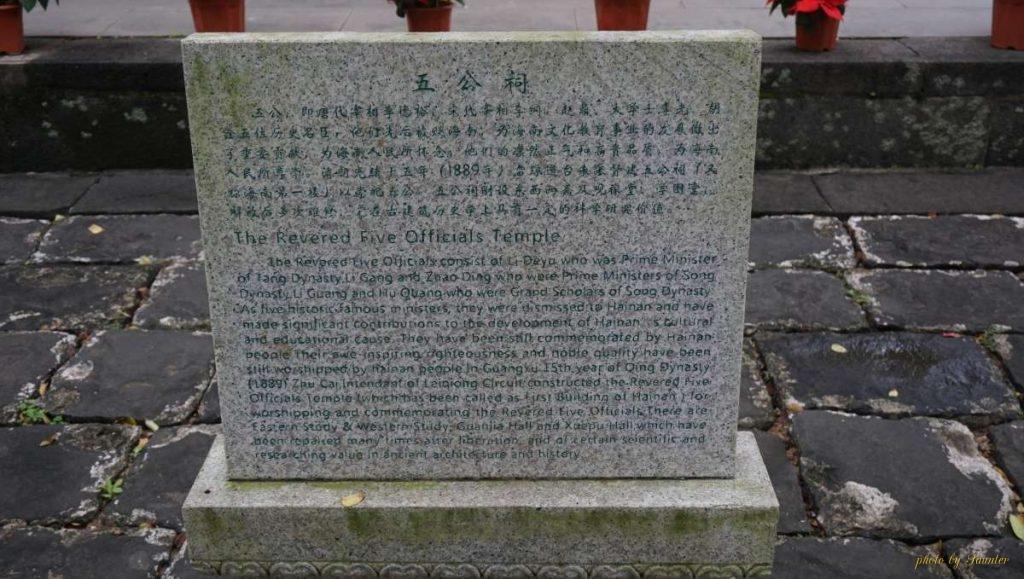 五公祠
五公，即唐代宰相李德裕，宋代宰相李纲、赵鼎、大学士李光、胡
铨五位历史名臣，他们先后被贬海南，为海南文化教育事业的发展做出
了重要贡献，为海南人民所怀念。他们的凛然正气和高贵品质，为海南
人民所尊崇。清朝光绪十五年（1889年）雷琼道台朱采修建五公祠（又
称海南第一楼）以崇祀五公。五公祠附设东西两斋及观稼堂、学圃堂，
解放后多次维修，在古建筑历史学上具有一定的科学研究价值。
The Revered Five Officials Temple
The Revered Five Officials consist of Li Deyu who was Prime Minister
of Tang Dynasty Li Gang and Zhao Ding who were Prime Ministers of Song
Dynasty Li Guang and Hu Quang who were Grand Scholars of Song Dynasty
As five historic famous ministers, they were dismissed to Hainan and have
made significant contributions to the development of Hainan, s cultural
and educational cause. They have been still commemorated by Hainan
people Their awe-inspiring righteousness and noble quality have been
still worshipped by Hainan people In Guangxu 15th year of Qing Dynasty
(1889) Zhu Cai Intendant of Leiqiong Circuit constructed the Revered Five
Officials Temple (which has been called as First Building of Hainan ) for
worshipping and commemorating the Revered Five Officials There are
Eastern Study & Western Study, Guanjia Hall and Xuepu Hall which have
been repaired many times after liberation, and of certain scientific and
researching value in ancient architecture and history.
photo by Jaunter